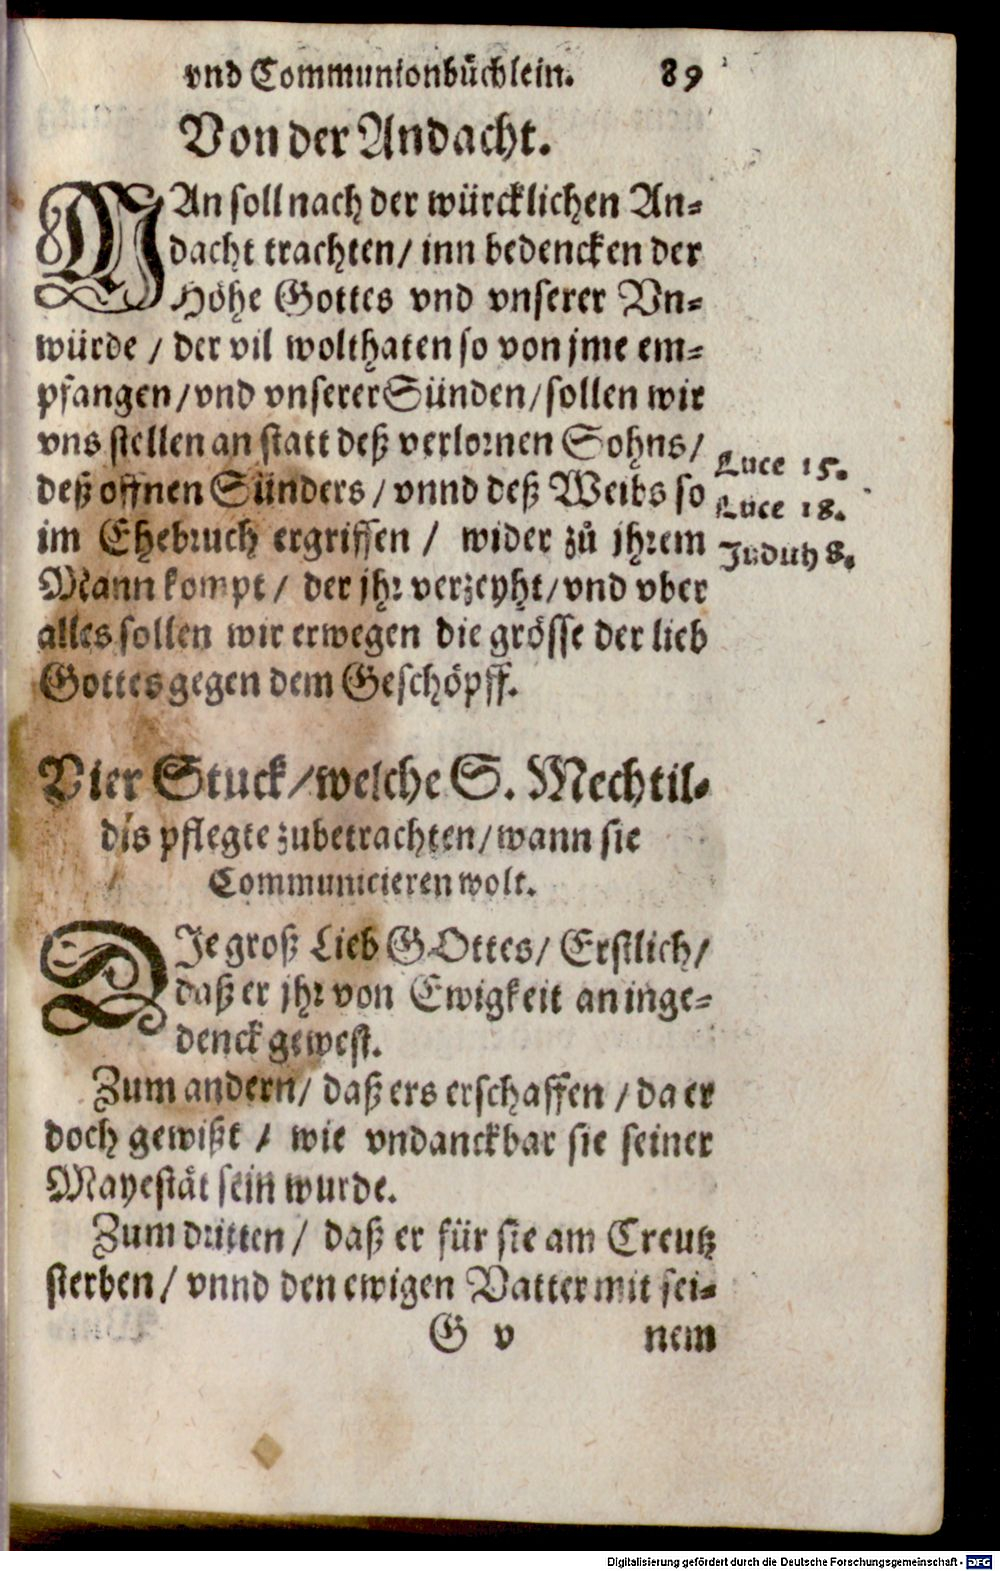 vnd Communionbüchlein. 89
Von der Andacht.
MAn soll nach der würcklichen An-
dacht trachten/ inn bedencken der
Höhe Gottes vnd vnserer Vn-
würde / der vil wolthaten so von jme em-
pfangen/vnd vnserer Sünden/sollen wir
vns stellen an statt deß verlornen Sohns/
Luce 15.
deß offnen Sünders / vnnd deß Weibs so
Luce 18.
im Ehebruch ergriffen / wider zů jhrem
Judith 8.
Mann kompt/ der jhr verzeyht/vnd vber
alles sollen wir erwegen die grösse der lieb
Gottes gegen dem Geschöpff.
Vier Stuck/welche S. Mechtil-
dis pflegte zubetrachten/wann sie
Communicieren wolt.
DIe groß Lieb GOttes/ Erstlich/
daß er jhr von Ewigkeit an inge-
denck gewest.
Zum andern/ daß ers erschaffen / da er
doch gewißt / wie vndanckbar sie seiner
Mayestät sein wurde.
Zum dritten / daß er für sie am Creutz
sterben/ vnnd den ewigen Vatter mit sei-
G v nem
Digitalisierung gefördert durch die Deutsche Forschungsgemeinschaft - DFG